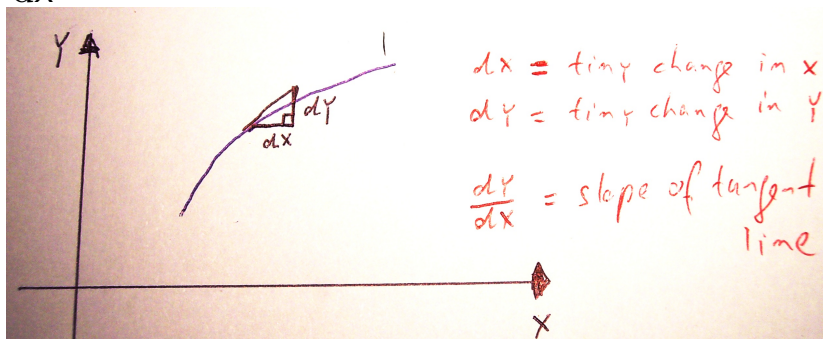 dx
Y
dx = tiny change in x
dy = tiny change in Y
dY
dx
dY
dx
= slope of tangent
line
X